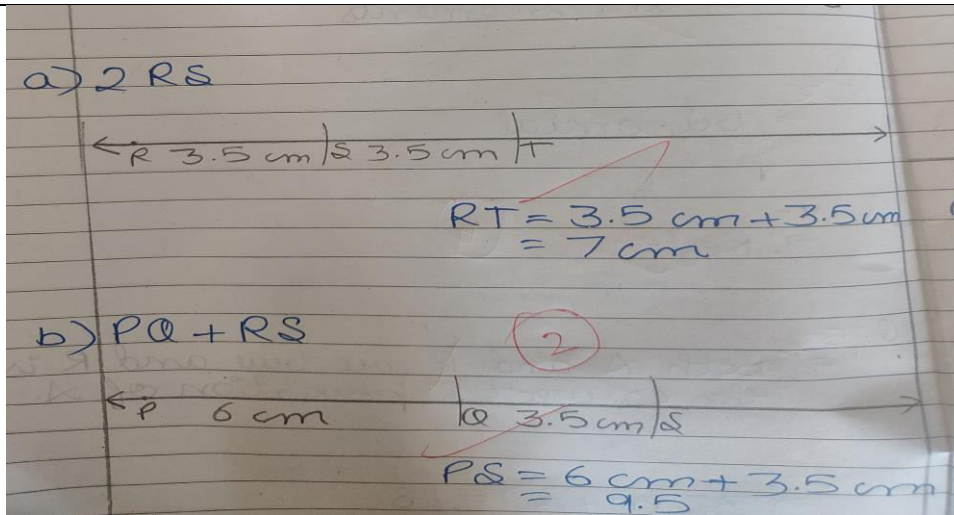 a) 2 RS
R 3.5 cm S 3.5 cm T
RT = 3.5 cm + 3.5 cm
= 7 cm
b) PQ + RS
2
P 6 cm Q 3.5 cm S
PS = 6 cm + 3.5 cm
= 9.5